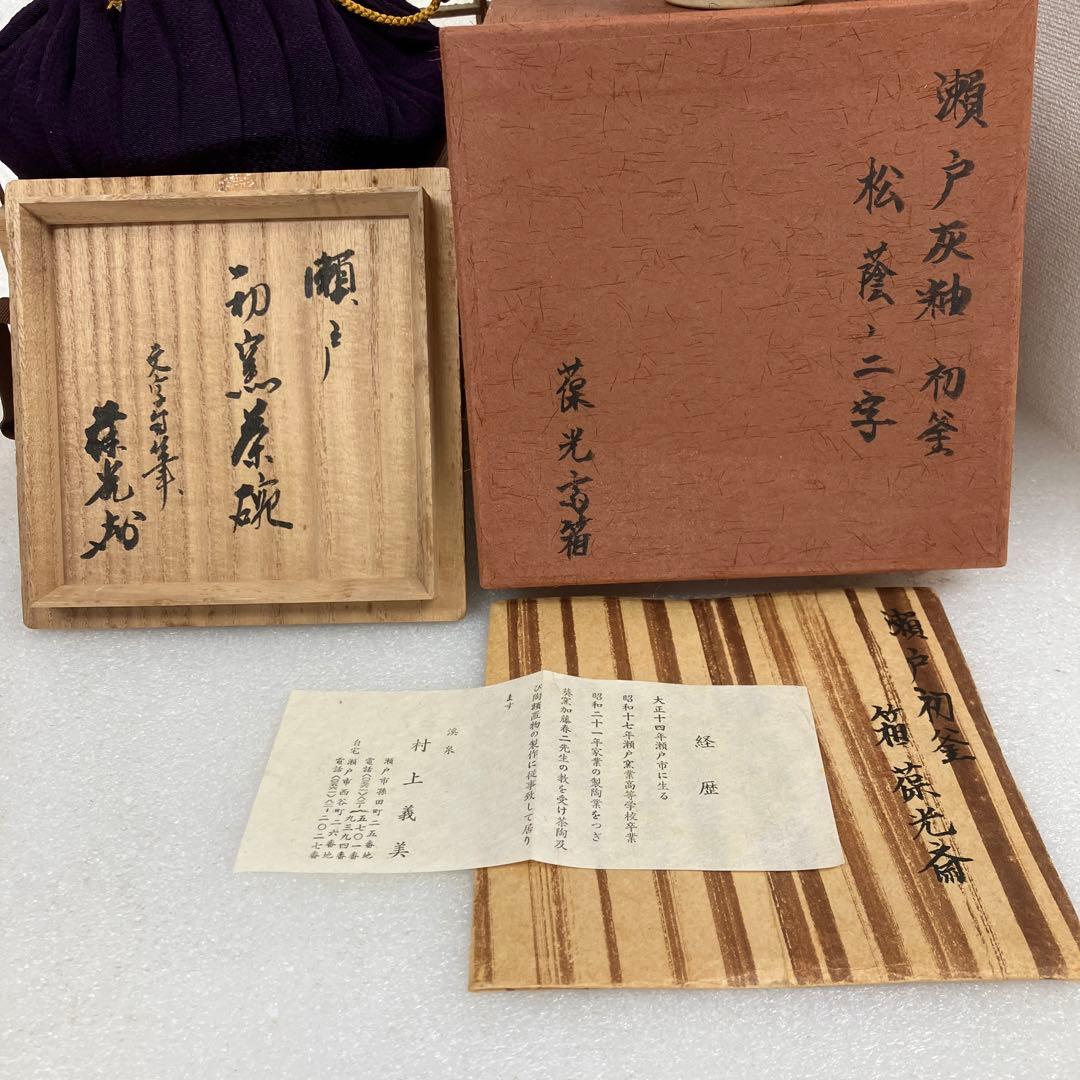 瀬戸
初窯茶碗
文字自筆
葆光
瀬戸灰釉 初釜
松蔭ノ二字
葆光斎箱
瀬戸初釜
箱 葆光斎
経歴
大正十四年瀬戸市に生る
昭和十七年瀬戸窯業高等学校卒業
昭和二十一年家業の製陶業をつぎ
葵窯加藤春二先生の教を受け茶陶及
び陶額置物の製作に従事致して居り
ます
渓泉
村上義美
瀬戸市孫田町二五番地
自宅 瀬戸市西谷町二六番地